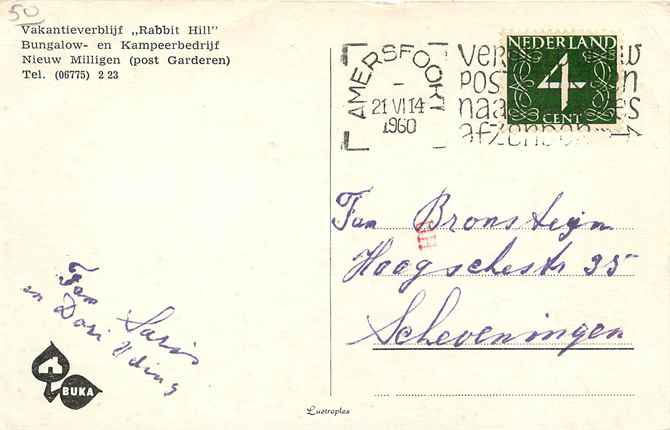 50
Vakantieverblijf „Rabbit Hill”
Bungalow- en Kampeerbedrijf
Nieuw Milligen (post Garderen)
Tel. (06775) 2 23
AMERSFOORT
21 VI 14
1960
NEDERLAND
4
CENT
Fam Bronsteyn
HN
Hoogschestr 35
Scheveningen
Fam Saris
en Dori
BUKA
Lustroplex